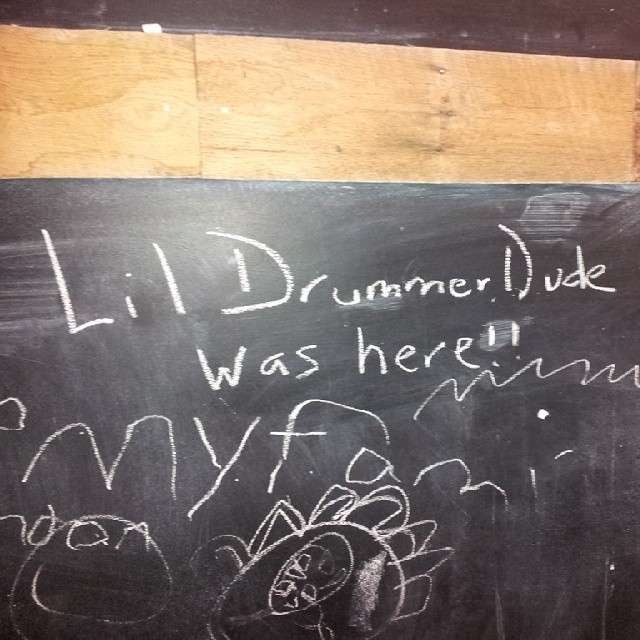 Lil Drummer Dude
was here!!
my fam